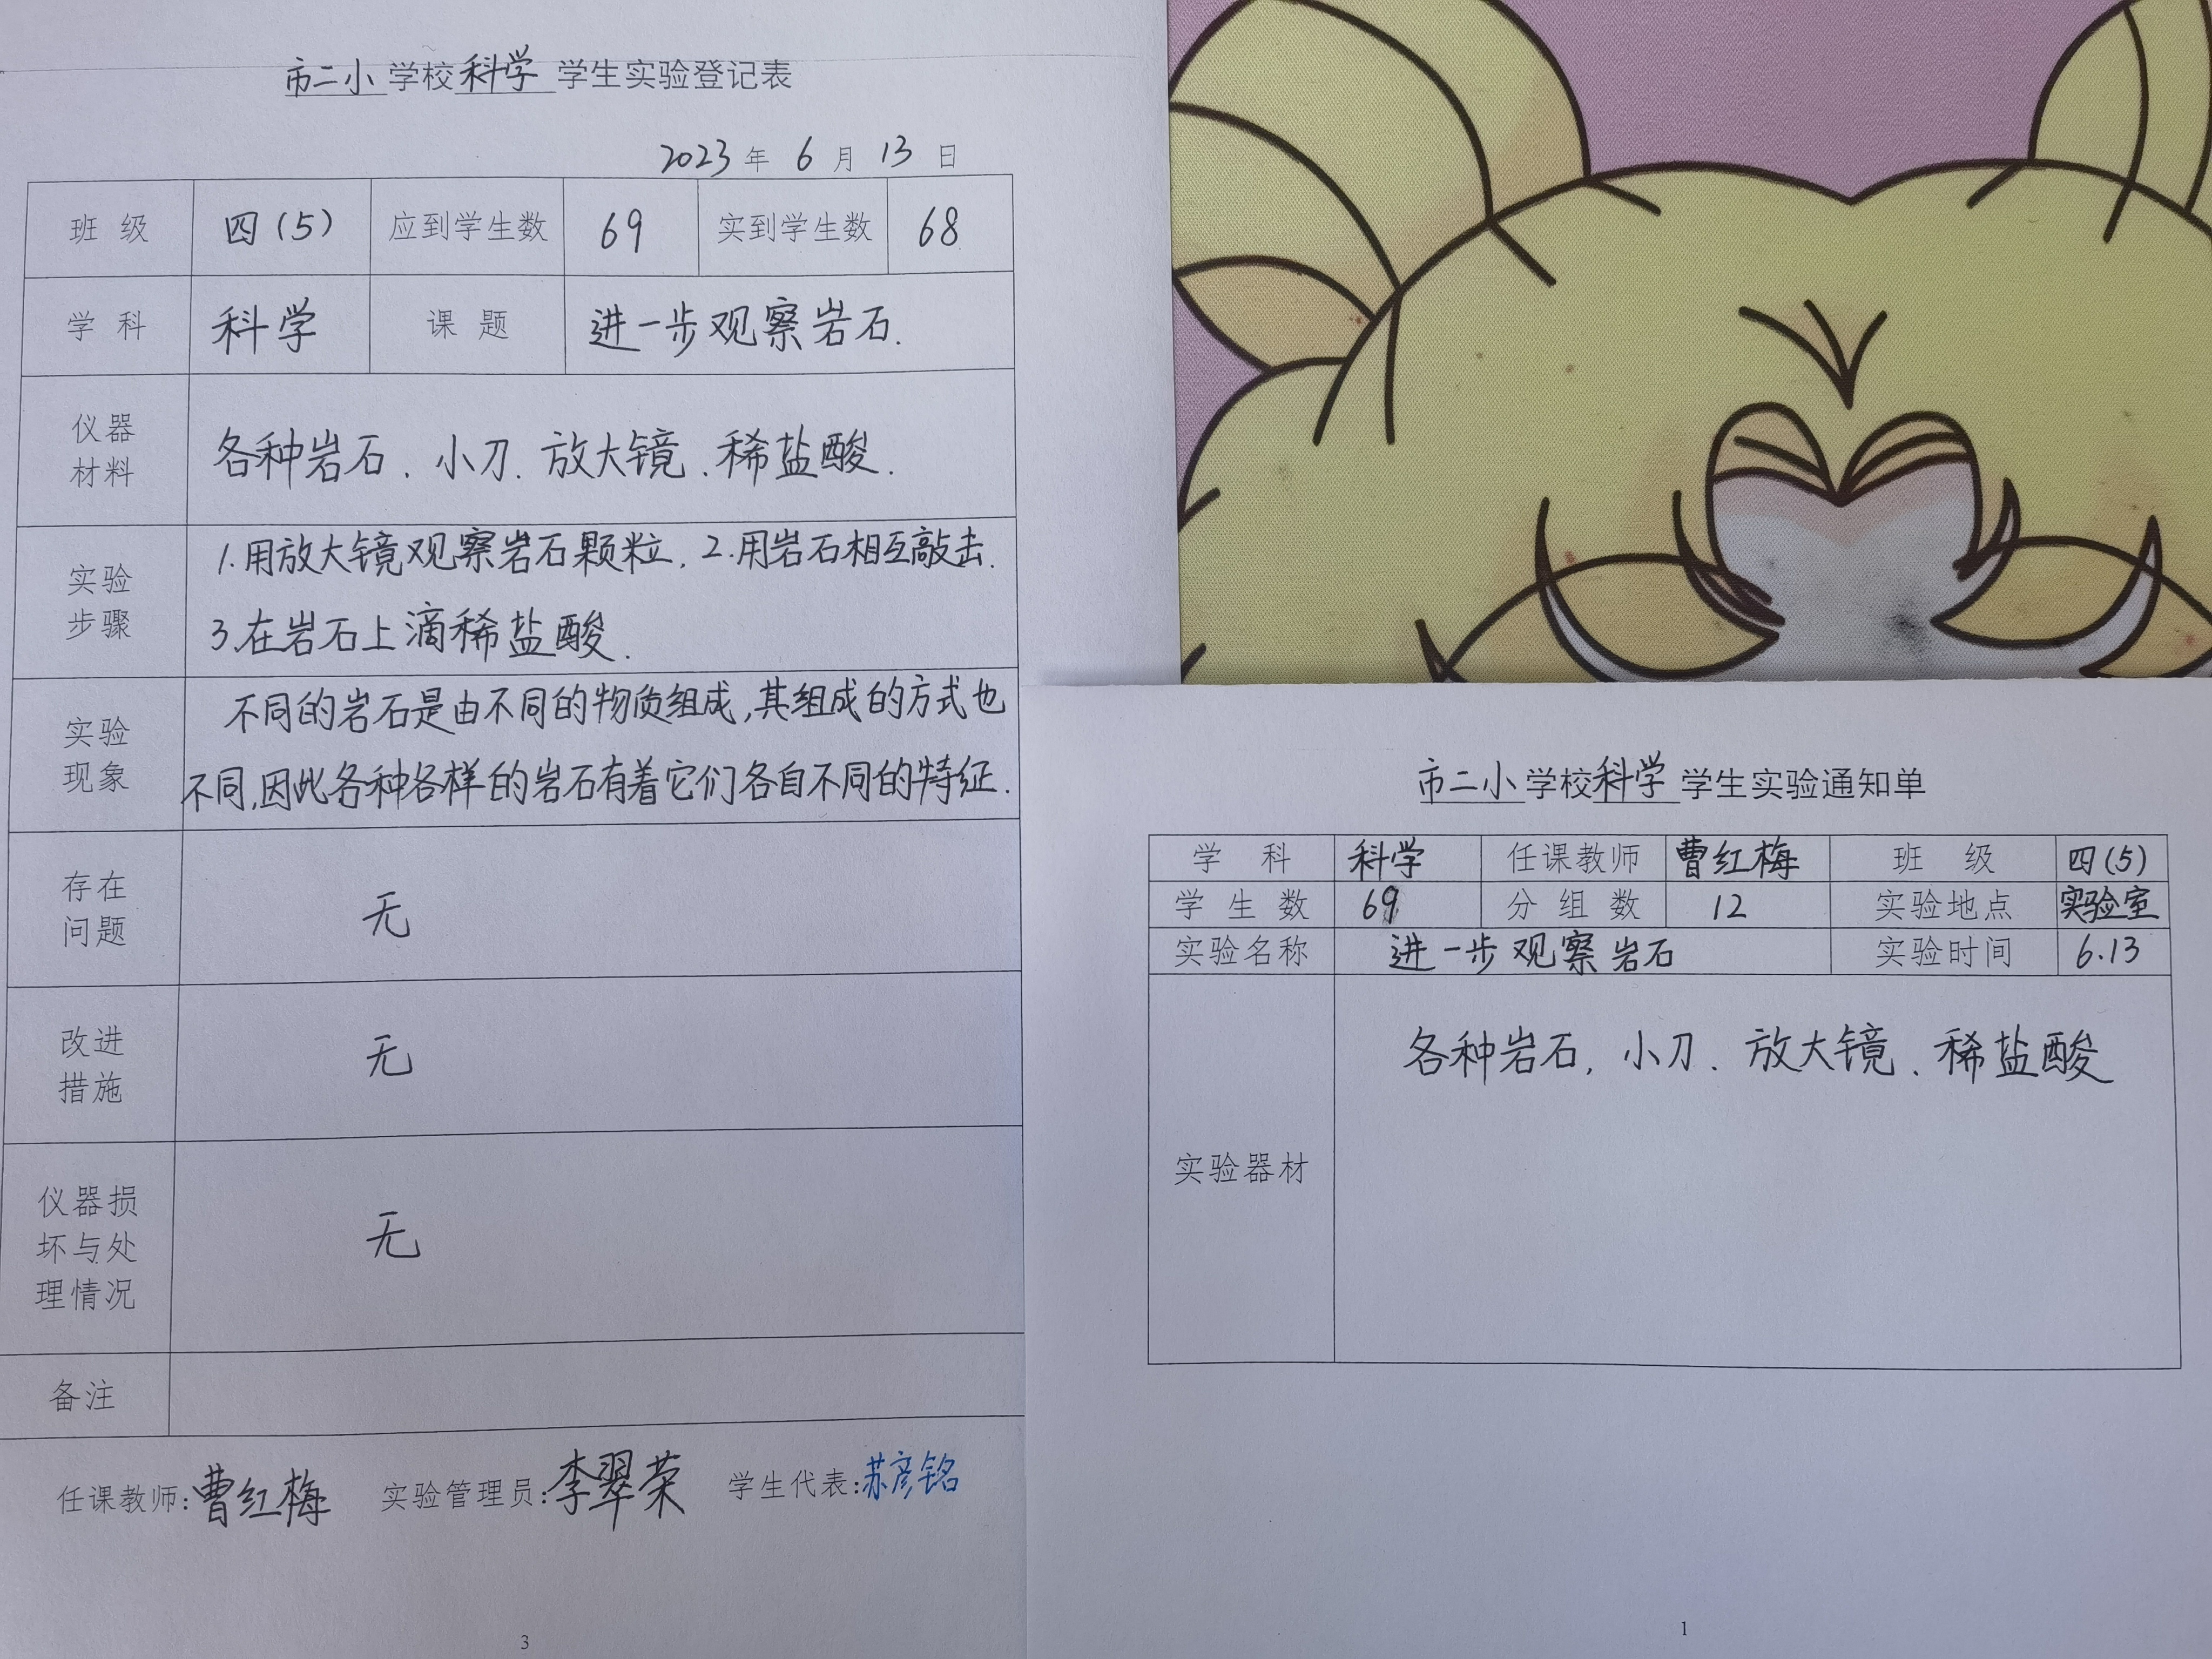 市二小学校科学学生实验登记表
2023年6月13日
班级 四(5) 应到学生数 69 实到学生数 68
学科 科学 课题 进一步观察岩石.
仪器材料 各种岩石、小刀、放大镜、稀盐酸.
实验步骤 1.用放大镜观察岩石颗粒. 2.用岩石相互敲击.
3.在岩石上滴稀盐酸.
实验现象 不同的岩石是由不同的物质组成,其组成的方式也
不同,因此各种各样的岩石有着它们各自不同的特征.
存在问题 无
改进措施 无
仪器损坏与处理情况 无
备注
任课教师:曹红梅 实验管理员:李翠荣 学生代表:苏彦铭
3
市二小学校科学学生实验通知单
学科 科学 任课教师 曹红梅 班级 四(5)
学生数 69 分组数 12 实验地点 实验室
实验名称 进一步观察岩石 实验时间 6.13
实验器材 各种岩石、小刀、放大镜、稀盐酸
1